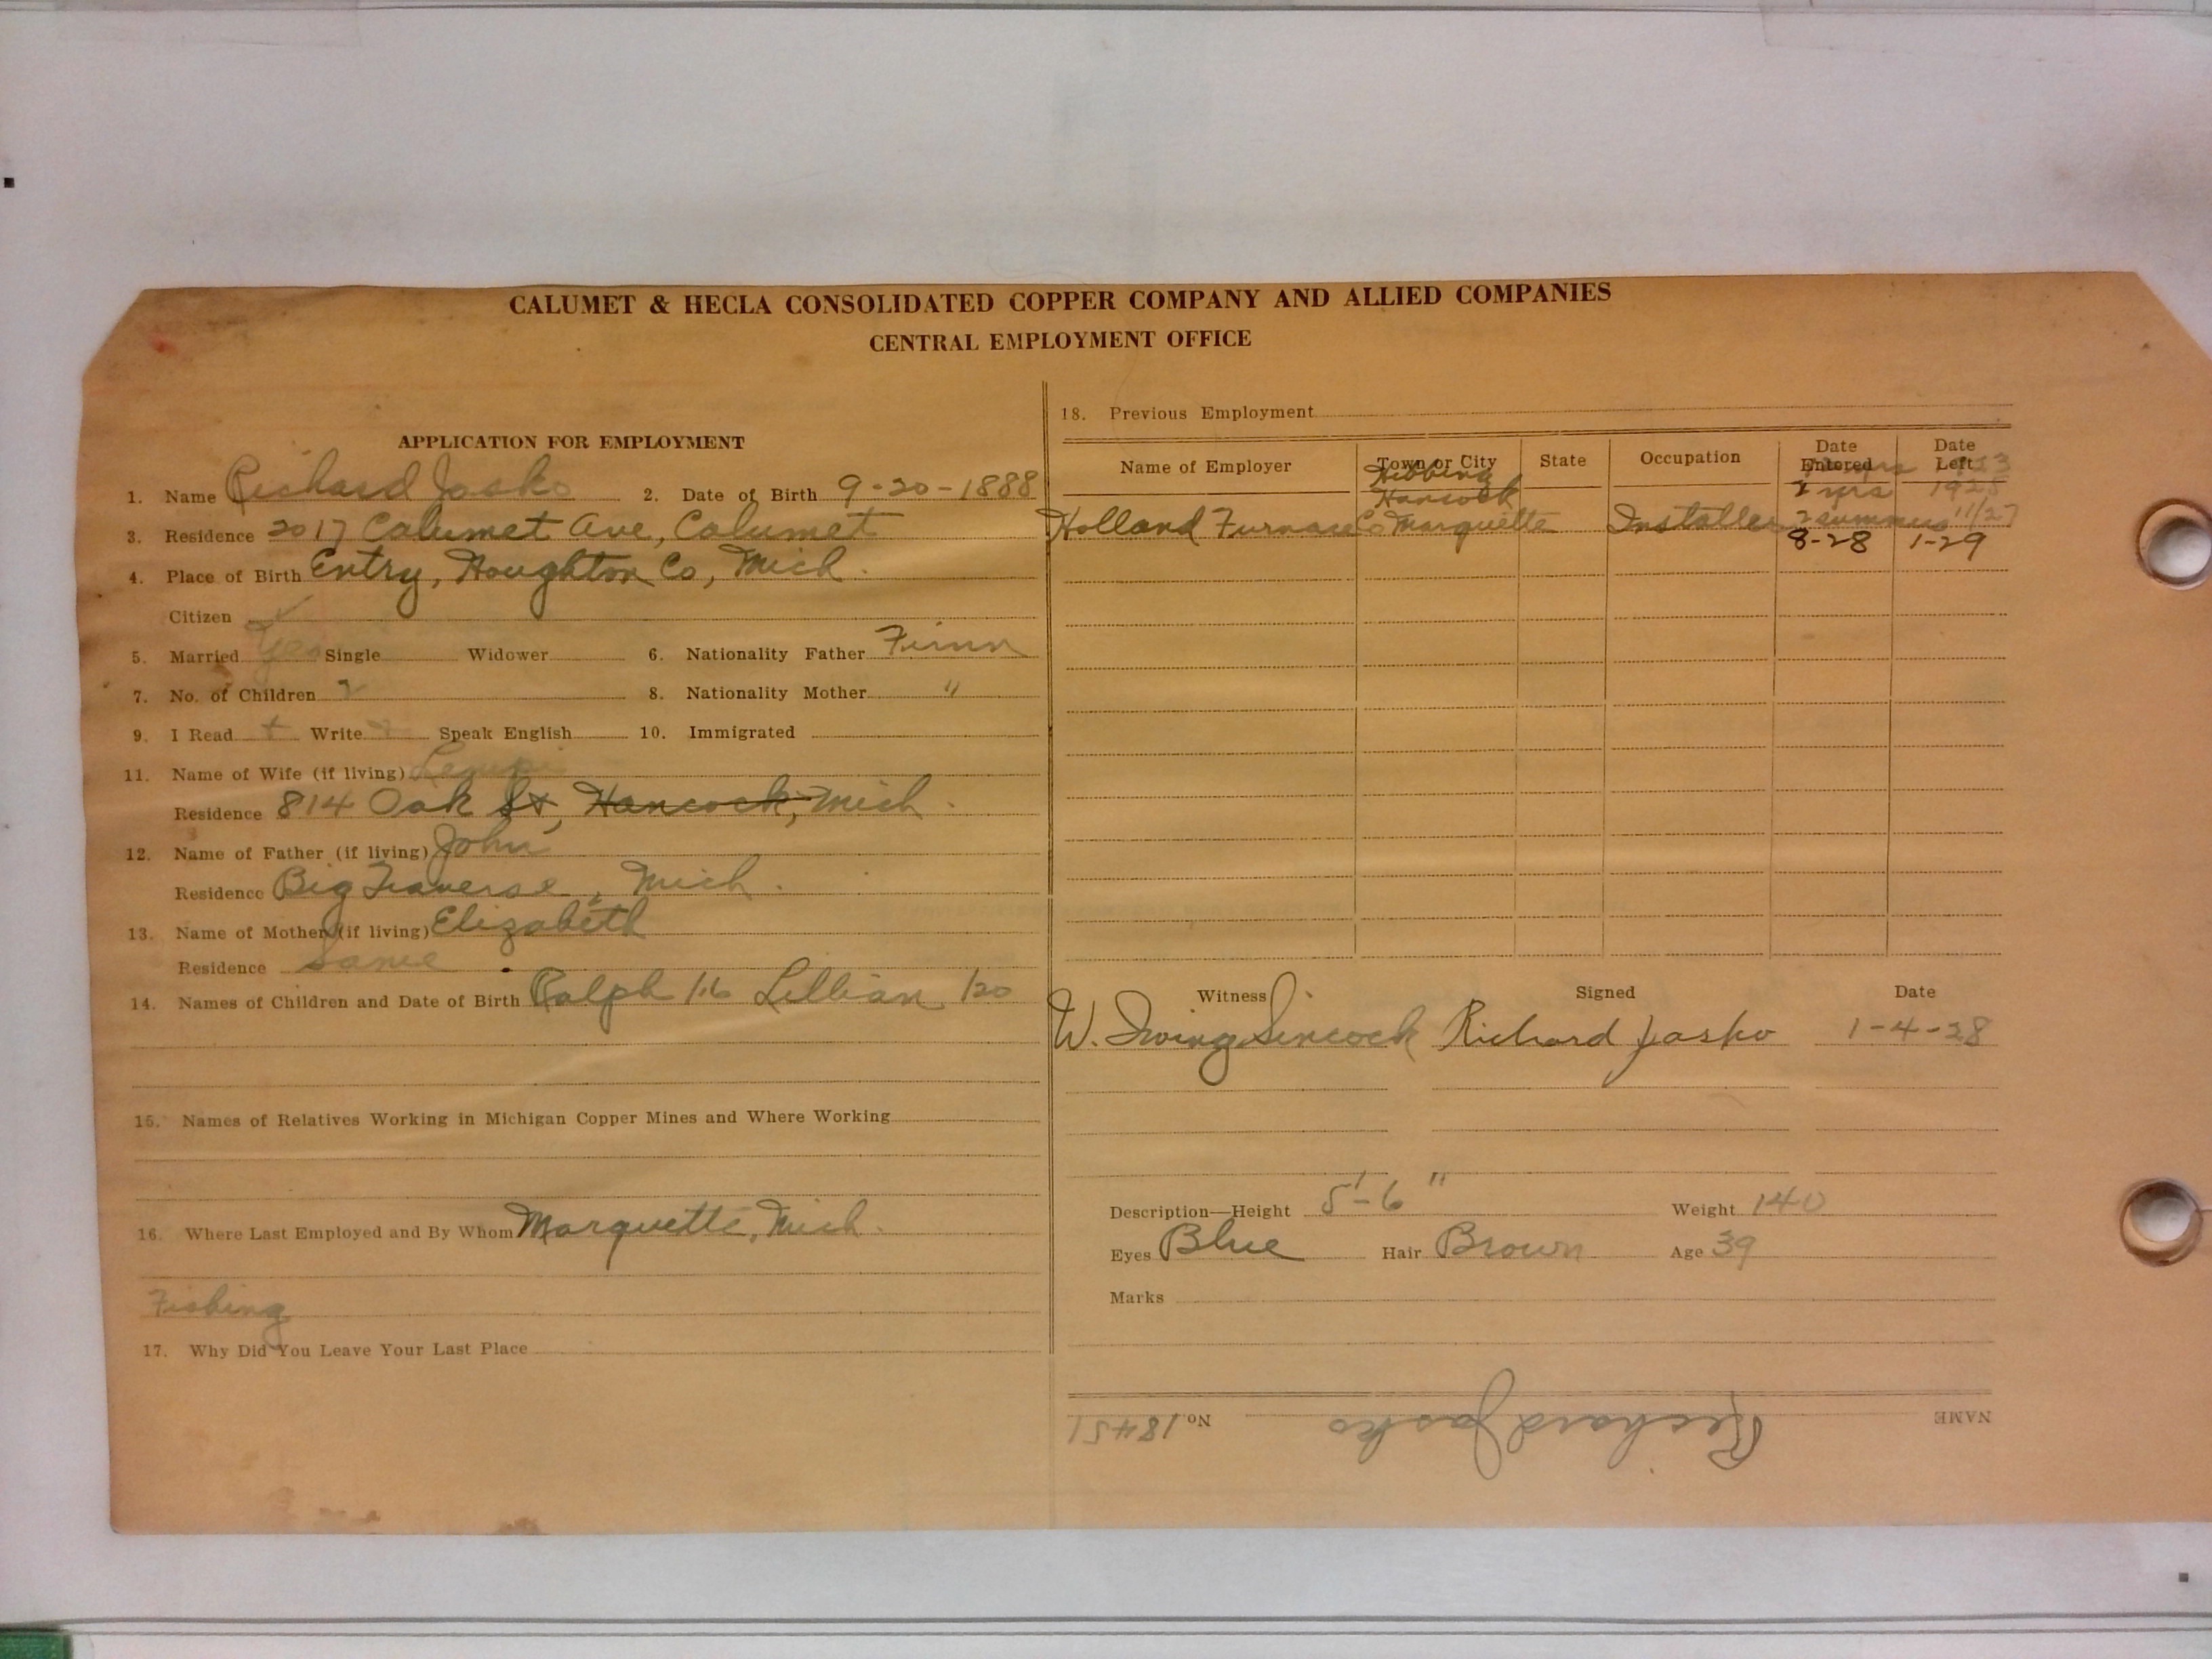 CALUMET & HECLA CONSOLIDATED COPPER COMPANY AND ALLIED COMPANIES
CENTRAL EMPLOYMENT OFFICE
APPLICATION FOR EMPLOYMENT
1. Name Richard Jasko 2. Date of Birth 9-20-1888
3. Residence 2017 Calumet Ave, Calumet
4. Place of Birth Entry, Houghton Co, Mich.
Citizen ✓
5. Married Yes Single Widower 6. Nationality Father Finn
7. No. of Children 2 8. Nationality Mother "
9. I Read + Write Speak English 10. Immigrated
11. Name of Wife (if living)
Residence 814 Oak St, Hancock, Mich.
12. Name of Father (if living) John
Residence Big Traverse, Mich.
13. Name of Mother (if living) Elizabeth
Residence Same
14. Names of Children and Date of Birth Ralph 16 Lillian 20
15. Names of Relatives Working in Michigan Copper Mines and Where Working
16. Where Last Employed and By Whom Marquette, Mich.
Fishing
17. Why Did You Leave Your Last Place
18. Previous Employment
Name of Employer Town or City State Occupation Date Entered Date Left
Hibbing
Hancock 2 yrs 1925
Holland Furnace Co Marquette Installer 2 summers 11/27
8-28 1-29
Witness Signed Date
W. Irving Sincock Richard Jasko 1-4-28
Description—Height 5'-6" Weight 140
Eyes Blue Hair Brown Age 39
Marks
NAME Richard Jasko No 18451